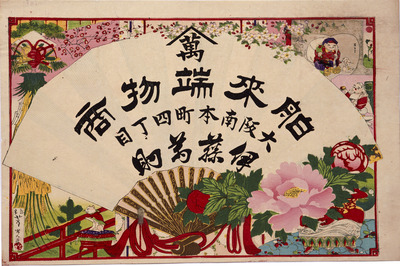 萬
舶来端物商
大阪南本町四丁目
伊藤萬助